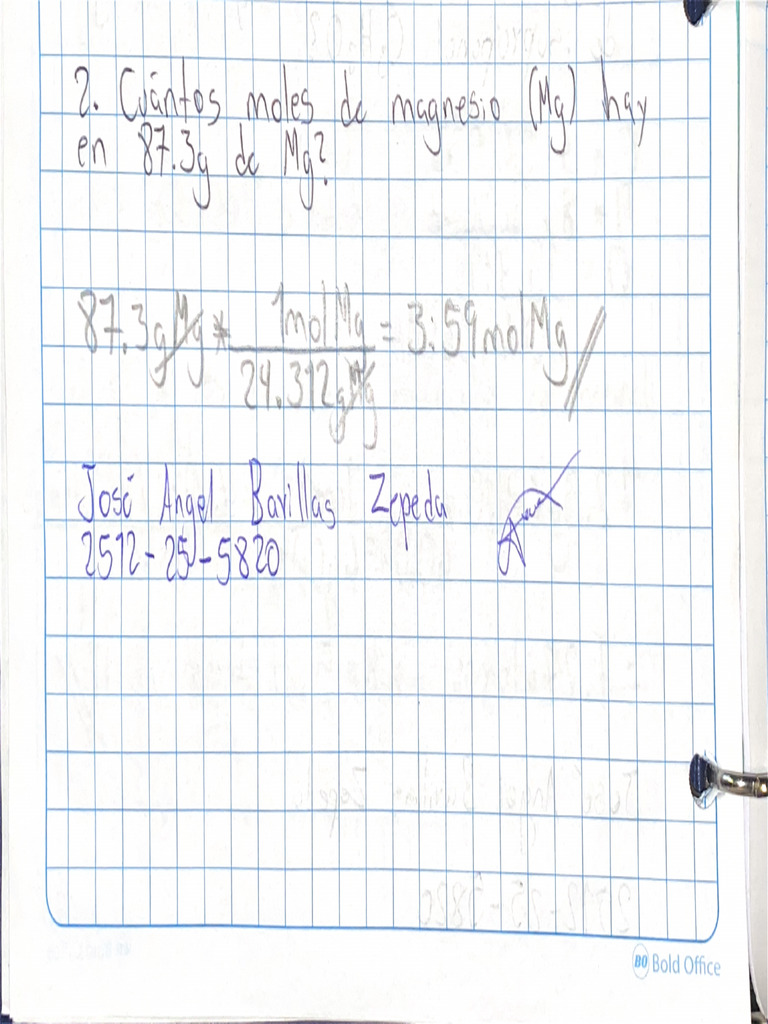 2. Cuántos moles de magnesio (Mg) hay
en 87.3g de Mg?
87.3g Mg * 1mol Mg / 24.312g Mg = 3.59 mol Mg //
José Angel Barillas Zepeda
2512-25-5820
BO Bold Office